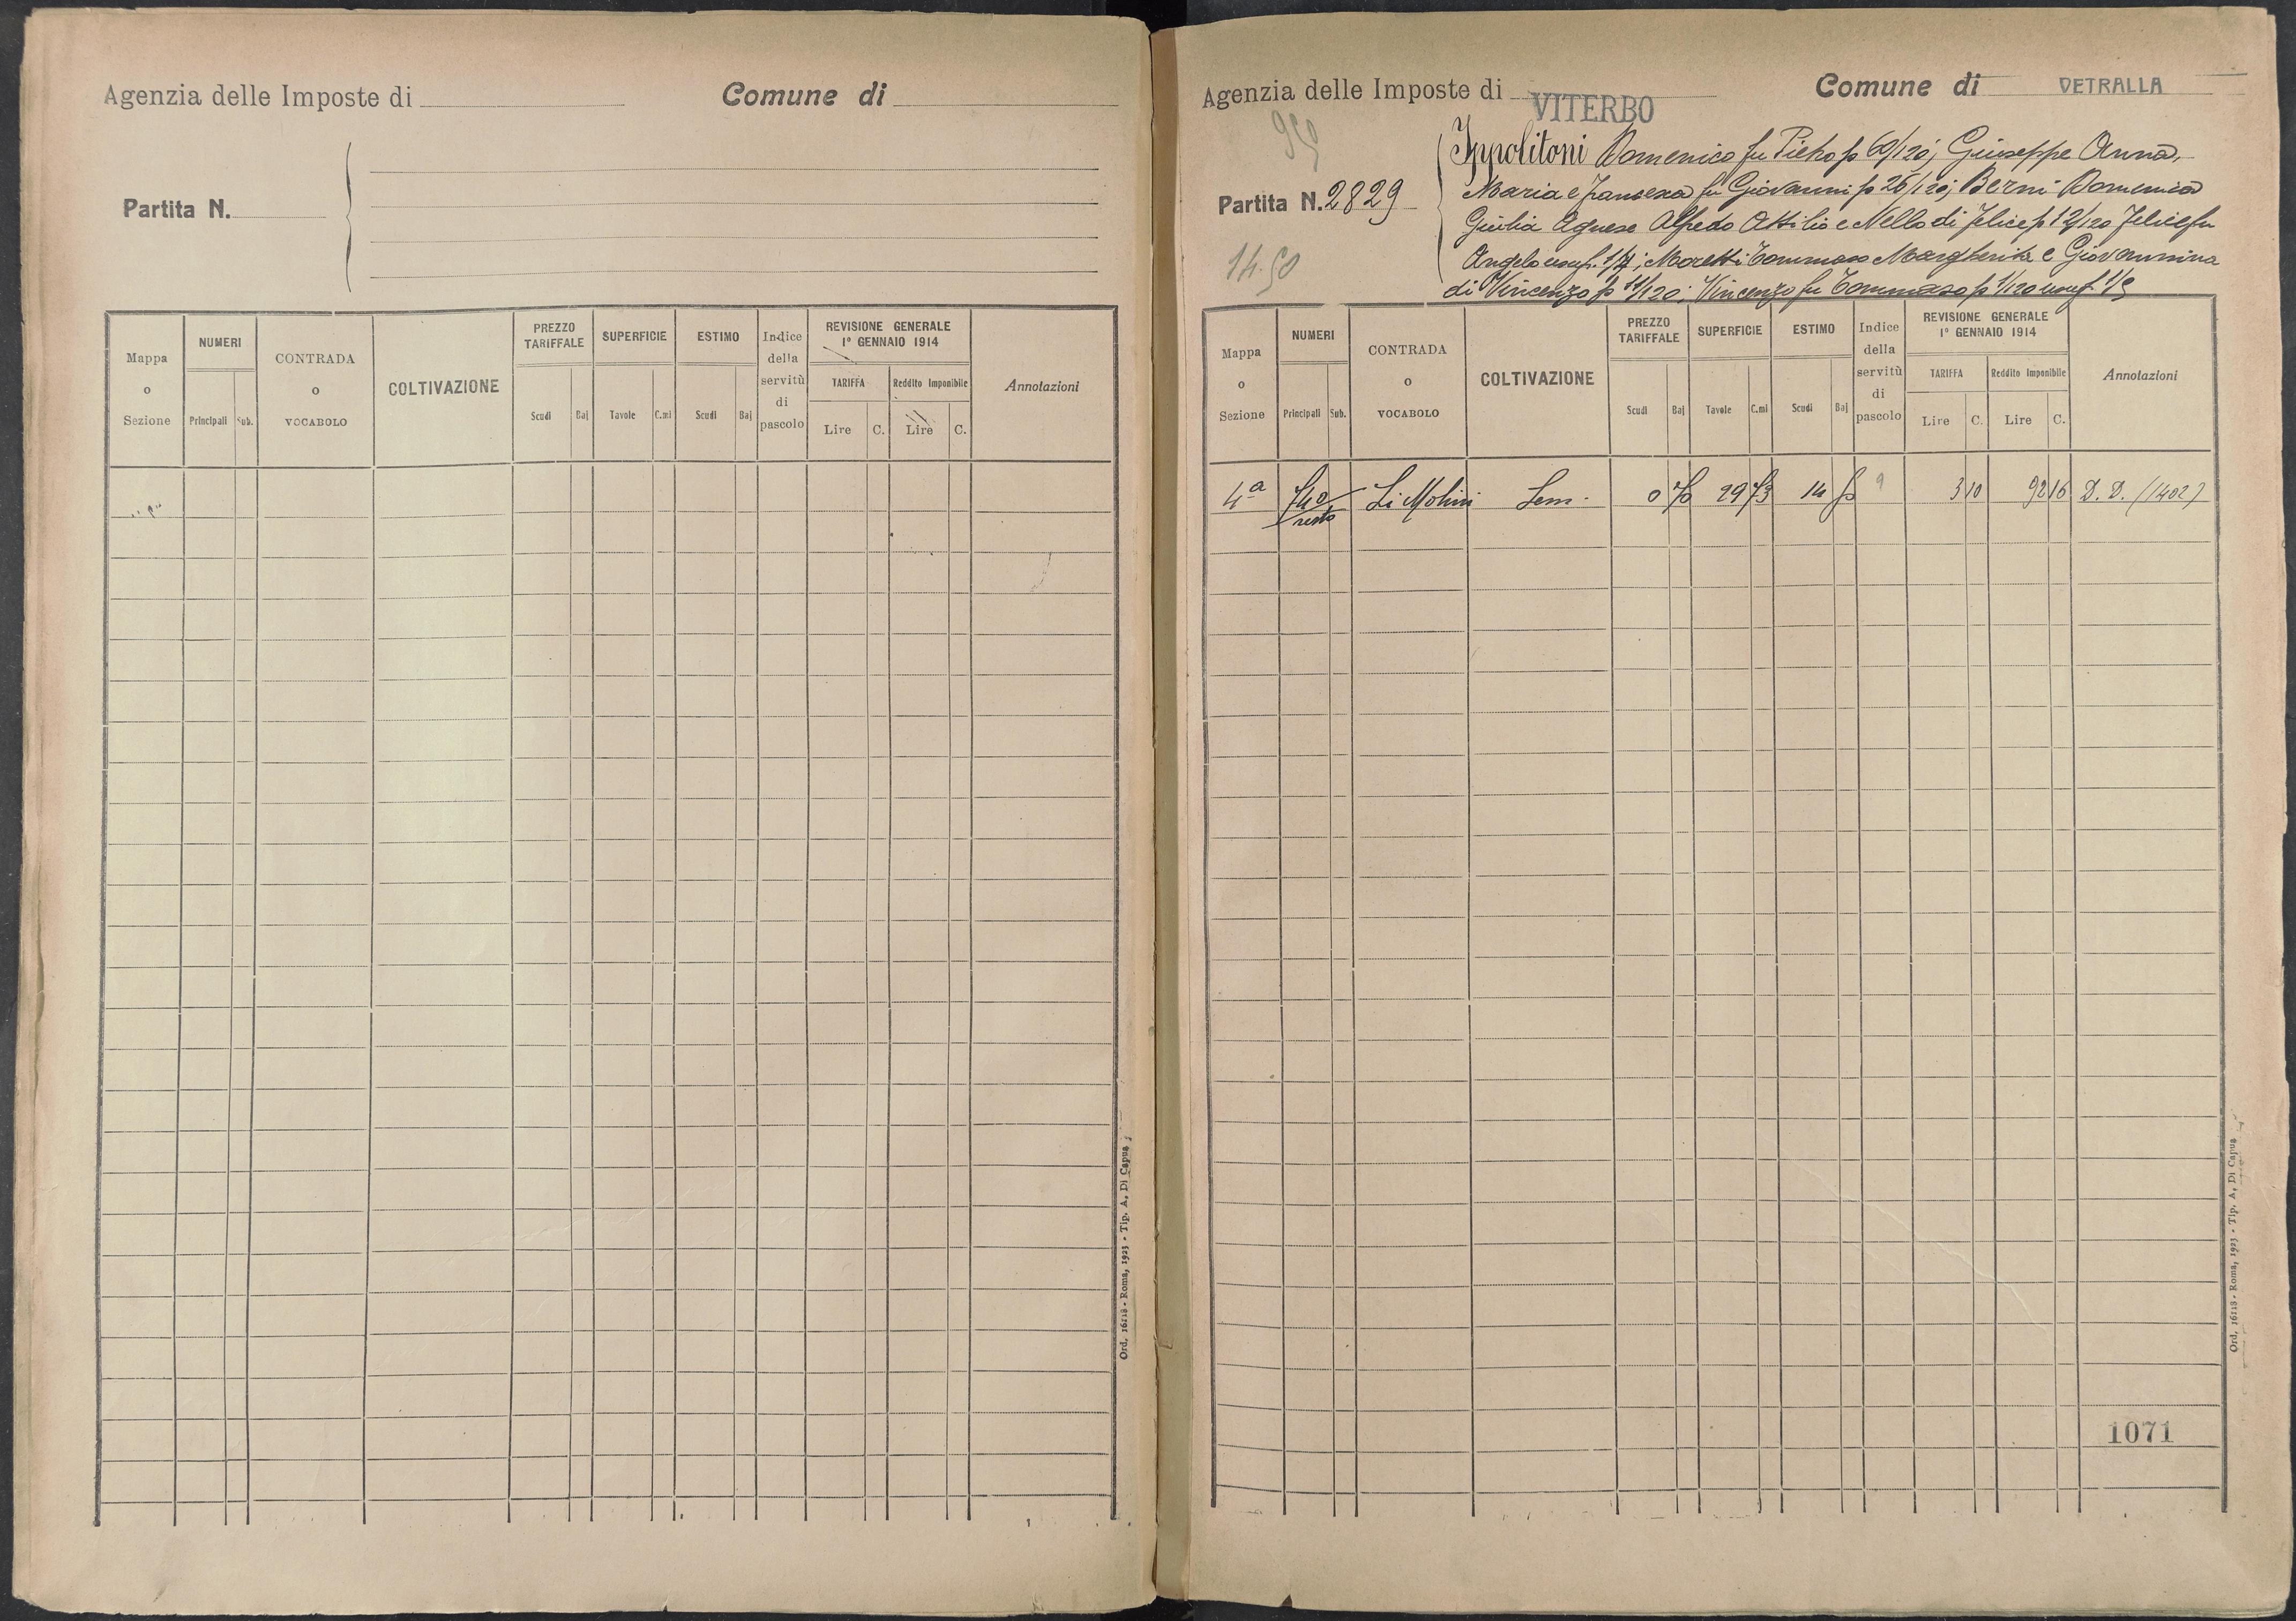 Agenzia delle Imposte di
Comune di
Partita N.
Mappa o Sezione
NUMERI
Principali
Sub.
CONTRADA o VOCABOLO
COLTIVAZIONE
PREZZO TARIFFALE
Scudi
Baj
SUPERFICIE
Tavole
C.mi
ESTIMO
Scudi
Baj
Indice della servitù di pascolo
REVISIONE GENERALE
1º GENNAIO 1914
TARIFFA
Reddito Imponibile
Lire
C.
Lire
C.
Annotazioni
Ord. 16118 - Roma, 1923 - Tip. A. Di Capua
Agenzia delle Imposte di VITERBO
Comune di VETRALLA
950
Partita N. 2829
14.50
Ippolitoni Domenico fu Pietro p 60/120; Giuseppe Anna,
Maria e Francesca fu Giovanni p 26/120; Berni Domenica
Giulia Agnese Alfredo Attilio e Nello di Felice p 12/120 Felice fu
Angelo usuf. ; Moretti Tommaso Margherita e Giovannina
di Vincenzo p 11/120; Vincenzo fu Tommaso p 1/120 usuf.
Mappa o Sezione
NUMERI
Principali
Sub.
CONTRADA o VOCABOLO
COLTIVAZIONE
PREZZO TARIFFALE
Scudi
Baj
SUPERFICIE
Tavole
C.mi
ESTIMO
Scudi
Baj
Indice della servitù di pascolo
REVISIONE GENERALE
1º GENNAIO 1914
TARIFFA
Reddito Imponibile
Lire
C.
Lire
C.
Annotazioni
4ª resto Li Molini Sem. 0 29 73 14 9 3 10 92 16 D. D. (1402)
1071
Ord. 16118 - Roma, 1923 - Tip. A. Di Capua